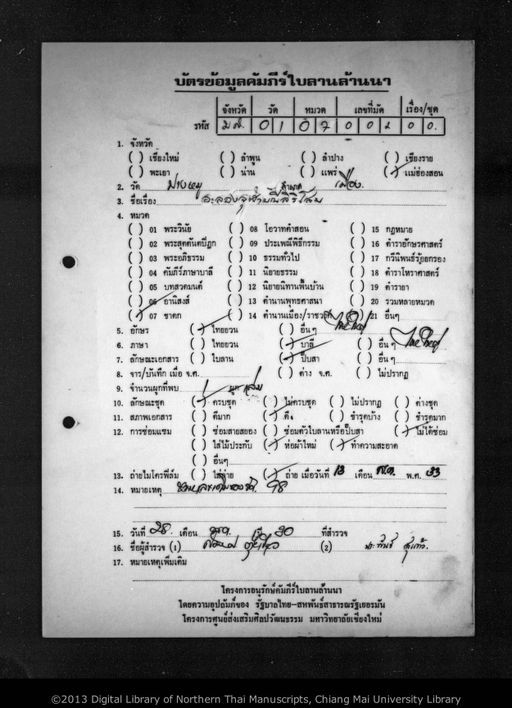 บัตรข้อมูลคัมภีร์ใบลานล้านนา
จังหวัด วัด หมวด เลขที่มัด เรื่อง/ชุด
รหัส ม.ส. 0 1 0 7 0 0 2 0 0.
1. จังหวัด
( ) เชียงใหม่ ( ) ลำพูน ( ) ลำปาง ( ) เชียงราย
( ) พะเยา ( ) น่าน ( ) แพร่ (/) แม่ฮ่องสอน
2. วัด อำเภอ เมือง.
3. ชื่อเรื่อง
4. หมวด
( ) 01 พระวินัย ( ) 08 โอวาทคำสอน ( ) 15 กฎหมาย
( ) 02 พระสุตตันตปิฎก ( ) 09 ประเพณีพิธีกรรม ( ) 16 ตำราอักษรศาสตร์
( ) 03 พระอภิธรรม ( ) 10 ธรรมทั่วไป ( ) 17 กวีนิพนธ์ร้อยกรอง
( ) 04 คัมภีร์ภาษาบาลี ( ) 11 นิยายธรรม ( ) 18 ตำราโหราศาสตร์
( ) 05 บทสวดมนต์ ( ) 12 นิยายนิทานพื้นบ้าน ( ) 19 ตำรายา
( ) 06 อานิสงส์ ( ) 13 ตำนานพุทธศาสนา ( ) 20 รวมหลายหมวด
(/) 07 ชาดก ( ) 14 ตำนานเมือง/ราชวงศ์ ( ) 21 อื่นๆ
5. อักษร (/) ไทยยวน ( ) อื่นๆ ไทใหญ่
6. ภาษา ( ) ไทยยวน (/) บาลี ( ) อื่นๆ ไทใหญ่
7. ลักษณะเอกสาร ( ) ใบลาน (/) ปั๊บสา ( ) อื่นๆ
8. จาร/บันทึก เมื่อ จ.ศ. ( ) ค่าง จ.ศ. ( ) ไม่ปรากฏ
9. จำนวนผูกที่พบ
10. ลักษณะชุด (/) ครบชุด ( ) ไม่ครบชุด ( ) ไม่ปรากฏ ( ) ค่างชุด
11. สภาพเอกสาร ( ) ดีมาก (/) ดี ( ) ชำรุดบ้าง ( ) ชำรุดมาก
12. การซ่อมแซม ( ) ซ่อมสายสยอง ( ) ซ่อมตัวใบลานหรือปั๊บสา (/) ไม่ได้ซ่อม
( ) ใส่ไม้ประกับ (/) ห่อผ้าใหม่ (/) ทำความสะอาด
( ) อื่นๆ
13. ถ่ายไมโครฟิล์ม ( ) ไม่ถ่าย (/) ถ่าย เมื่อวันที่ 13 เดือน พ.ค. พ.ศ. 33
14. หมายเหตุ
15. วันที่ 28. เดือน ปี 30 ที่สำรวจ
16. ชื่อผู้สำรวจ (1) (2)
17. หมายเหตุเพิ่มเติม
โครงการอนุรักษ์คัมภีร์ใบลานล้านนา
โดยความอุปถัมภ์ของ รัฐบาลไทย-สหพันธ์สาธารณรัฐเยอรมัน
โครงการศูนย์ส่งเสริมศิลปวัฒนธรรม มหาวิทยาลัยเชียงใหม่
©2013 Digital Library of Northern Thai Manuscripts, Chiang Mai University Library